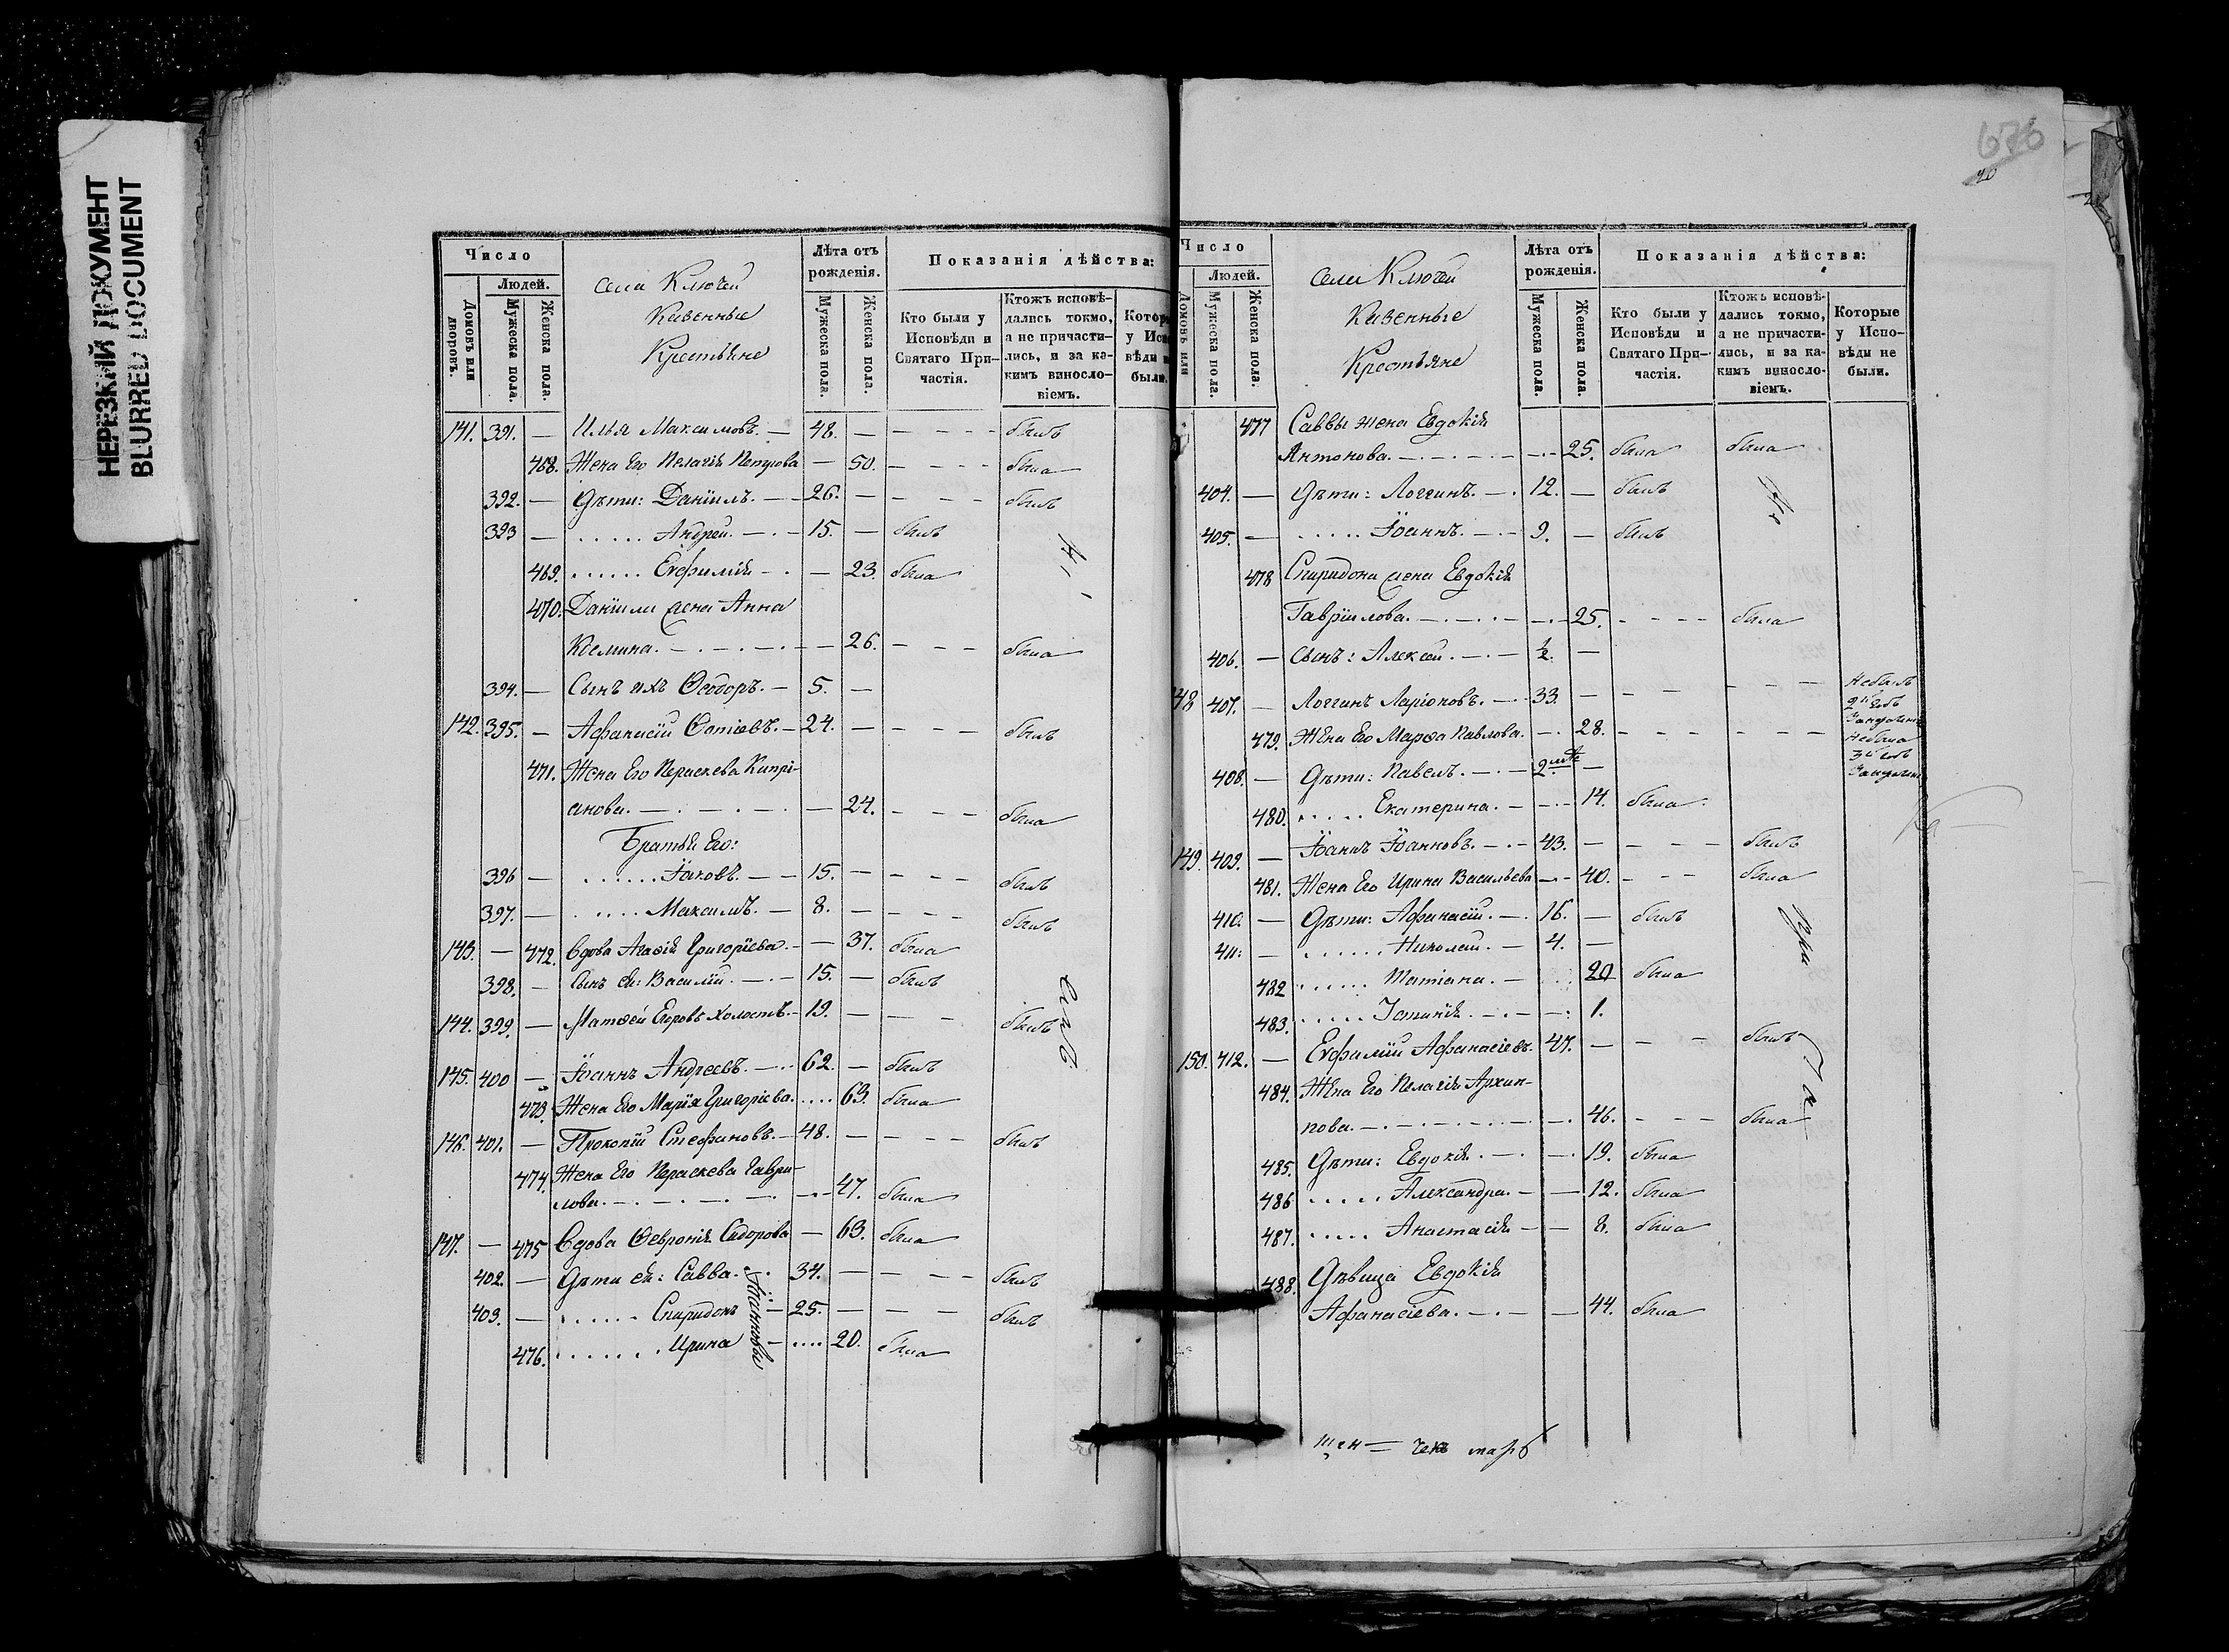 НЕРЕЗКИЙ ДОКУМЕНТ
BLURRED DOCUMENT
Число
Людей.
Домовъ или дворовъ.
Мужеска пола.
Женска пола.
села Ключей
Казенные
Крестьяне
Лѣта отъ рожденія.
Мужеска пола.
Женска пола.
Показанія дѣйства:
Кто были у Исповѣди и Святаго Причастія.
Ктожъ исповѣдались токмо, а не причастились, и за какимъ винословіемъ.
141. 391. — Илья Максимовъ. — 48. — — — — — былъ
468. Жена Его Пелагія Петрова — 50. — — — — была
392. — Дѣти: Даніилъ. — — 26. — — — — былъ
393 — ...... Андрей. — . — 15. — былъ
469. ...... Евфимія — . — 23. была
470. Даніила жена Анна
Космина. — . — . — . — — 26. — — — была
394. — Сынъ ихъ Ѳеодоръ. — 5. —
142. 395. — Афанасій Фотіевъ. — 24. — — — — былъ
471. Жена Его Параскева Кипрі-
анова. — . — . — . — — 24. — — — была
Братья Его:
396 — ...... Іаковъ. — — 15. — — — — былъ
397. — ..... Максимъ. — 8. — — — — былъ
143. — 472. Вдова Агаѳія Григоріева. — — 37. была
398. — Сынъ ея: Василій. — . — 15. — былъ
144. 399. — Матѳей Егоровъ холостъ. — 19. — — — — былъ
145. 400 — Іоаннъ Андреевъ. — . — 62. — былъ
473. Жена Его Марія Григоріева. .... 63. была
146. 401. — Прокопій Стефановъ. — 48. — — — — былъ
474. Жена Его Параскева Гаври-
лова. — . — . — . — . — . — 47. была
147. — 475 Вдова Ѳевронія Сидорова — 63. была
402. — Дѣти ея: Савва. — . 34. — — — — былъ
403. — ...... Спиридонъ — 25. — — — былъ
476. ....... Ирина — .... 20. была
678
Число
Людей.
Мужеска пола.
Женска пола.
села Ключей
Казенные
Крестьяне
Лѣта отъ рожденія.
Мужеска пола.
Женска пола.
Показанія дѣйства:
Кто были у Исповѣди и Святаго Причастія.
Ктожъ исповѣдались токмо, а не причастились, и за какимъ винословіемъ.
Которые у Исповѣди не были.
477 Саввы жена Евдокія
Антонова. — . — . — . — — . — 25. была была
404. — Дѣти: Логгинъ. — . 12. — былъ
405. — ..... Іоаннъ. — . — 9. — былъ
478 Спиридона жена Евдокія
Гавріилова. — . — . — — . — 25. — — — — была
406. — Сынъ: Алексѣй. — . — 1/2. —
148 407. — Логгинъ Ларіоновъ. — . 33. — — — — — — — Небылъ
479. Жена Его Марѳа Павлова. — . 28. — — — — — — — Небыла
408. — Дѣти: Павелъ. — . — 2 —
480. ..... Екатерина. — — . — 14. была
149. 409. — Іоаннъ Іоанновъ. — . — 43. — — — — былъ
481. Жена Его Ирина Васильева — . — 40. — — — была
410. — Дѣти: Афанасій. — . 16. — былъ
411. — ...... Николай. — 4. —
482 ...... Татіана. — 20 была
483. ..... Іустинія. — . — — . 1.
150. 412. — Евфимій Афанасіевъ. 47. — — — былъ
484. Жена Его Пелагія Архип-
пова. — . — . — . — . — . 46. — — — была
485. Дѣти: Евдокія. — . — . 19. была
486 ..... Александра. — — 12. была
487. ..... Анастасія — — 8. была
488. Дѣвица Евдокія
Афанасіева. — . — — 44. была